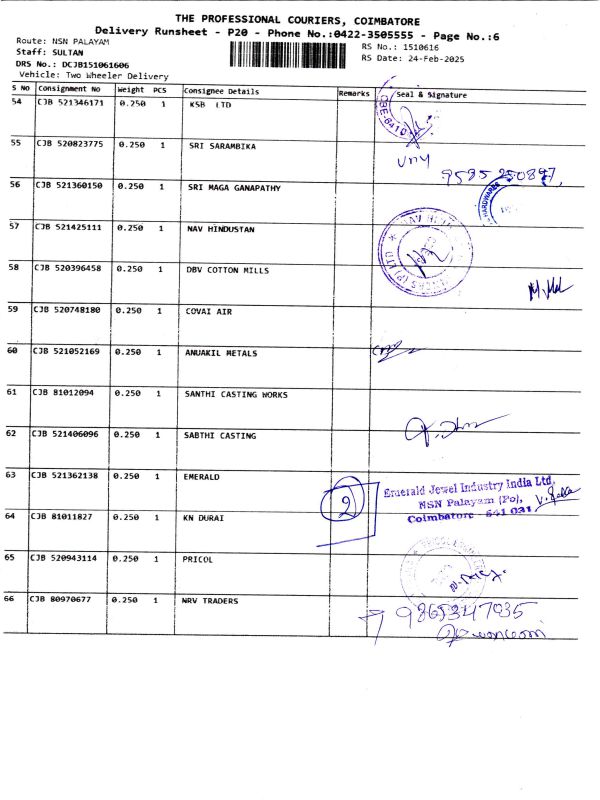 THE PROFESSIONAL COURIERS, COIMBATORE
Delivery Runsheet - P20 - Phone No.:0422-3505555 - Page No.:6
Route: NSN PALAYAM
RS No.: 1510616
Staff: SULTAN
RS Date: 24-Feb-2025
DRS No.: DCJB151061606
Vehicle: Two Wheeler Delivery
S No Consignment No Weight PCS Consignee Details Remarks Seal & Signature
54 CJB 521346171 0.250 1 KSB LTD
CBE-6410
55 CJB 520823775 0.250 1 SRI SARAMBIKA
56 CJB 521360150 0.250 1 SRI MAGA GANAPATHY
HARDWARES
57 CJB 521425111 0.250 1 NAV HINDUSTAN
58 CJB 520396458 0.250 1 DBV COTTON MILLS
59 CJB 520748180 0.250 1 COVAI AIR
60 CJB 521052169 0.250 1 ANUAKIL METALS
61 CJB 81012094 0.250 1 SANTHI CASTING WORKS
62 CJB 521406096 0.250 1 SABTHI CASTING
63 CJB 521362138 0.250 1 EMERALD
2
Emerald Jewel Industry India Ltd.
NSN Palayam (Po),
Coimbatore - 641 031
64 CJB 81011827 0.250 1 KN DURAI
65 CJB 520943114 0.250 1 PRICOL
66 CJB 80970677 0.250 1 NRV TRADERS
9865347035